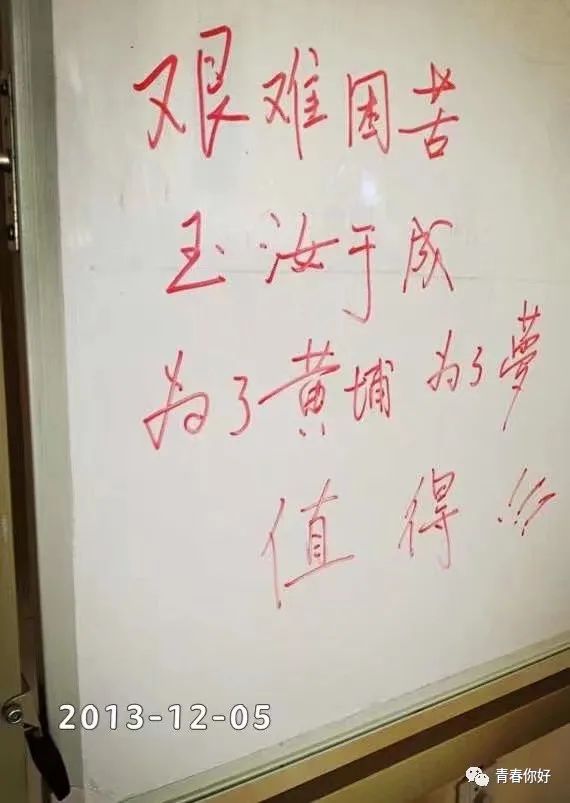 艰难困苦
玉汝于成
为了黄埔 为了夢
值得!!!
2013-12-05
青春你好